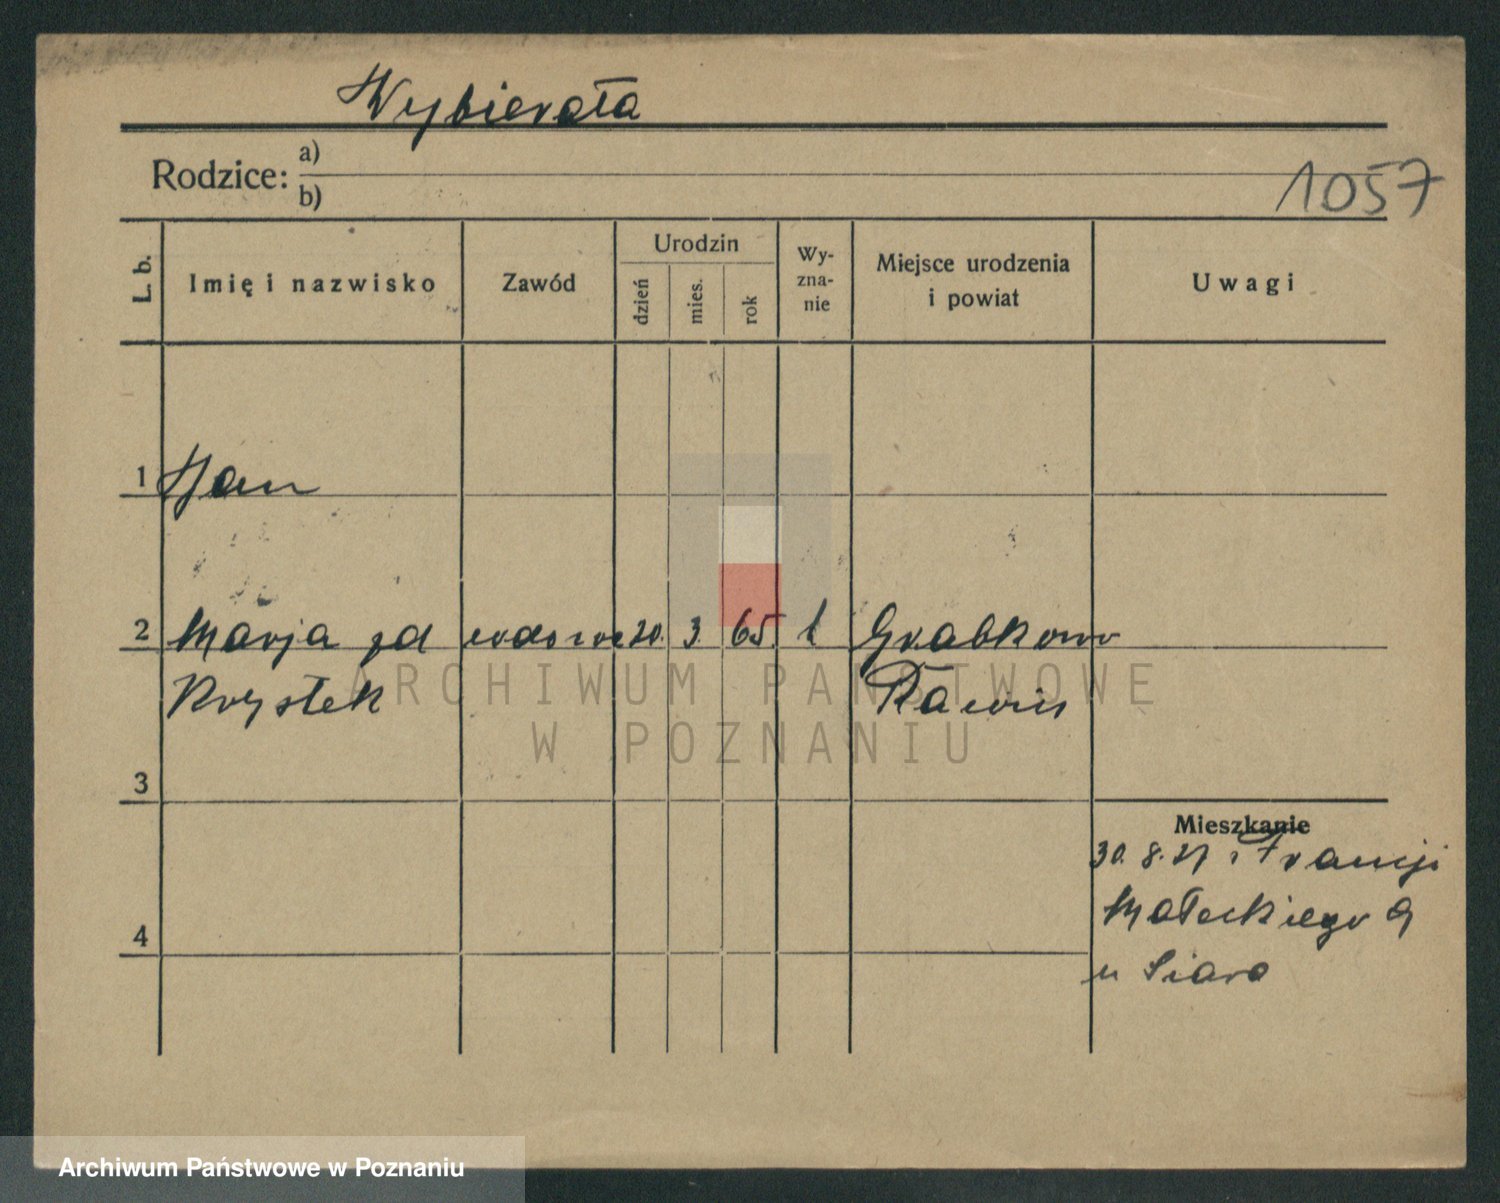 Wybierała
Rodzice: a)
b)
1057
L. b.
Imię i nazwisko
Zawód
Urodzin
dzień
mies.
rok
Wy-
zna-
nie
Miejsce urodzenia
i powiat
Uwagi
1 Jan
2 Marja zd wdowa 20. 3. 65. k Grabkowo
Krystek Rawicz
3
4
Mieszkanie
30. 8. 27 z Francji
Małeckiego 9
u Siara
ARCHIWUM PAŃSTWOWE
W POZNANIU
Archiwum Państwowe w Poznaniu